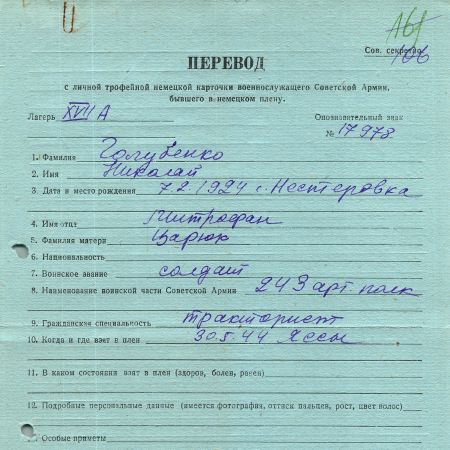 Сов. секретно
106
ПЕРЕВОД
с личной трофейной немецкой карточки военнослужащего Советской Армии,
бывшего в немецком плену.
Лагерь XVII A
Опознавательный знак
№ 17978
1. Фамилия Голубенко
2. Имя Николай
3. Дата и место рождения 7.2.1924 г. Нестеровка
4. Имя отца Митрофан
5. Фамилия матери Царюк
6. Национальность
7. Воинское звание солдат
8. Наименование воинской части Советской Армии 243 арт. полк
9. Гражданская специальность тракторист
10. Когда и где взят в плен 30.5.44 Яссы
11. В каком состоянии взят в плен (здоров, болен, ранен)
12. Подробные персональные данные (имеется фотография, оттиск пальцев, рост, цвет волос)
Особые приметы